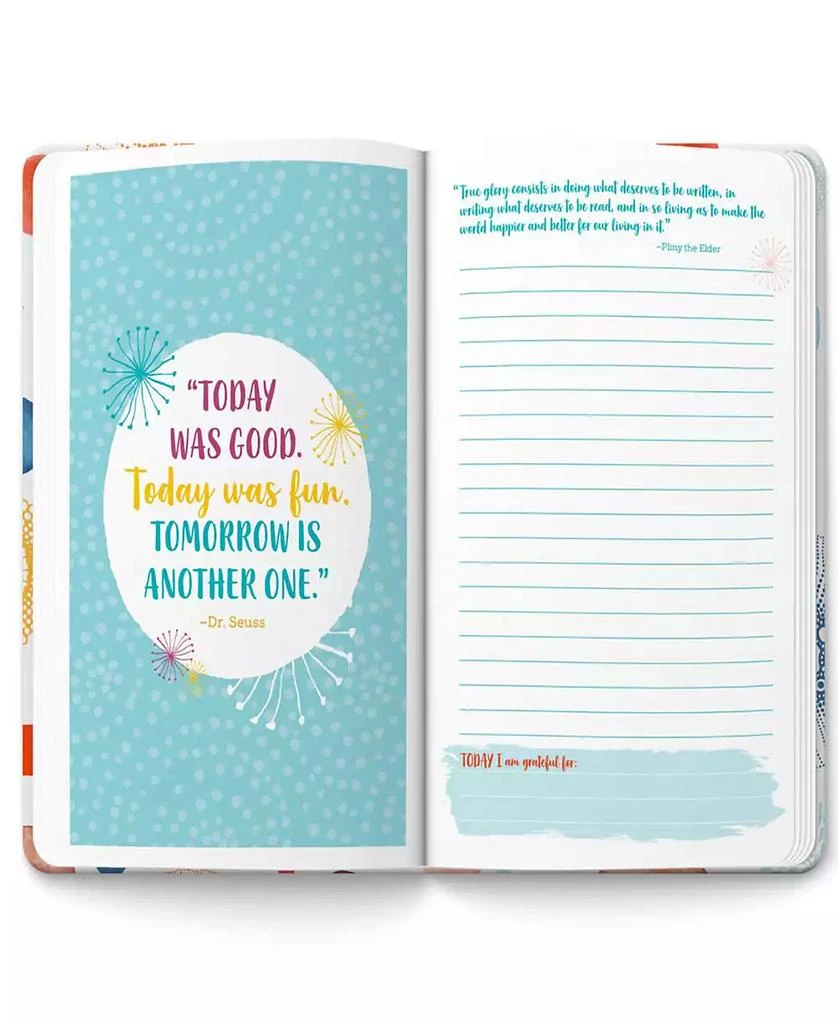 “TODAY
WAS GOOD.
Today was fun.
TOMORROW IS
ANOTHER ONE.”
–Dr. Seuss
“True glory consists in doing what deserves to be written, in
writing what deserves to be read, and in so living as to make the
world happier and better for our living in it.”
–Pliny the Elder
TODAY I am grateful for: